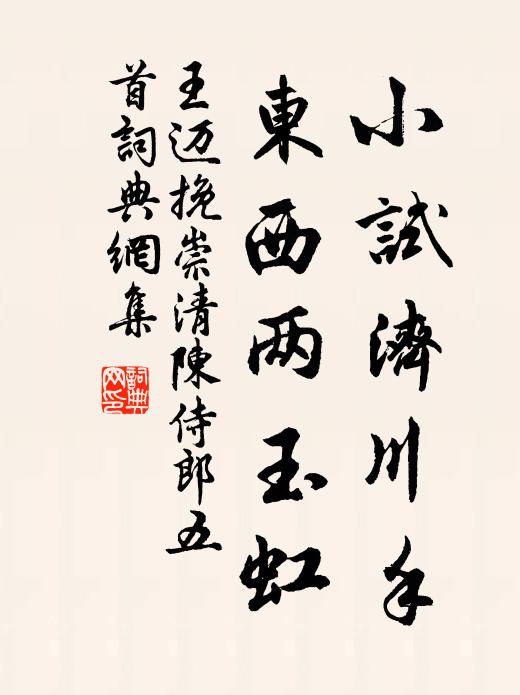 小試濟川手
東西两玉虹
王迈挽崇清陳侍郎五
首詞典網集
詞典网印